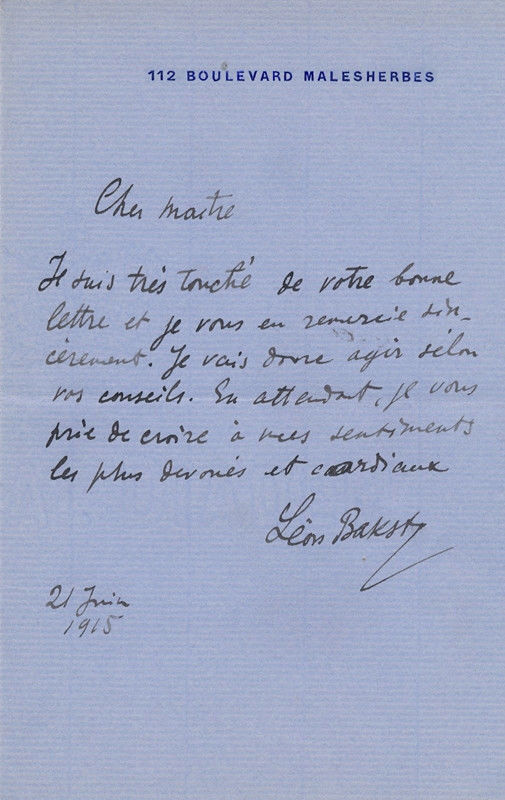 112 BOULEVARD MALESHERBES
Cher maitre
Je suis très touché de votre bonne
lettre et je vous en remercie sin-
cèrement. Je vais donc agir sélon
vos conseils. En attendant, je vous
prie de croire à mes sentiments
les plus devoués et cordiaux
Léon Bakst
21 Juin
1915